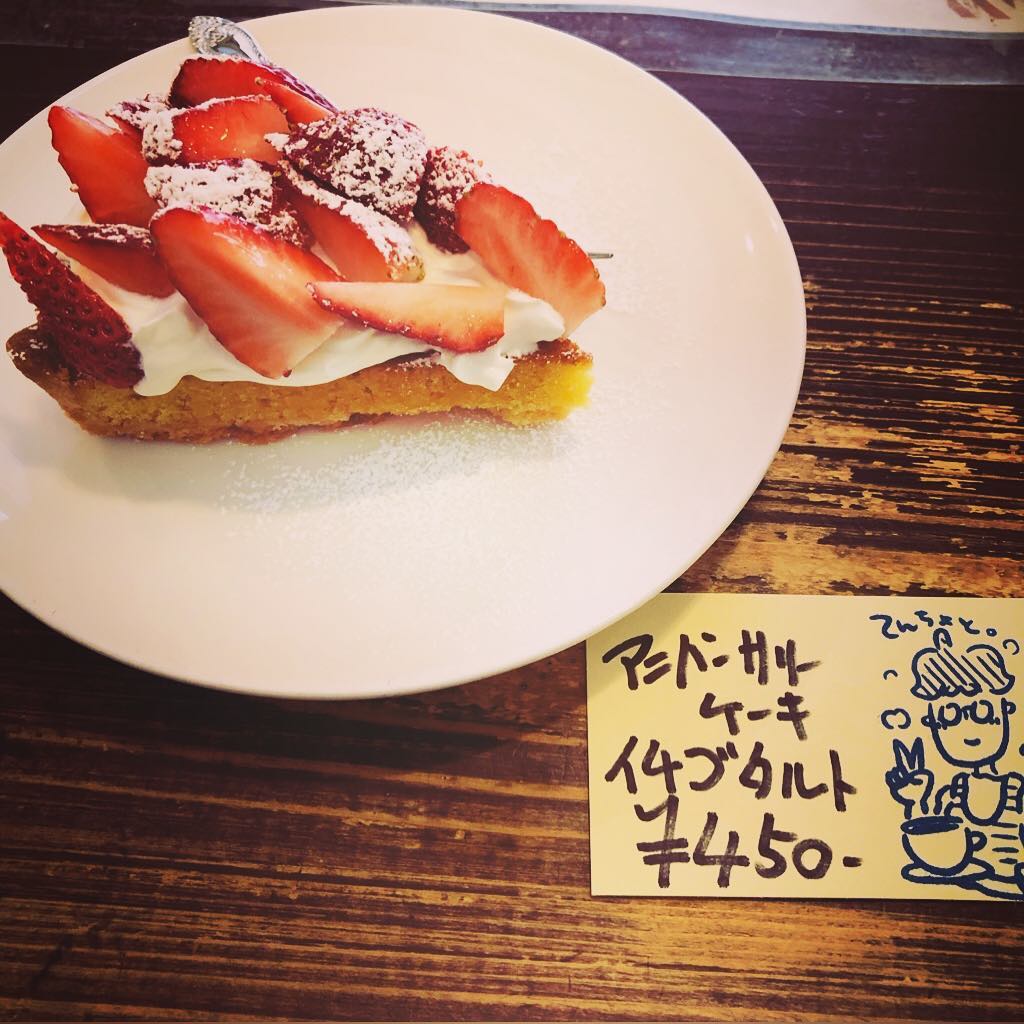 てんちょと。
アニバーサリー
ケーキ
イチゴタルト
¥450-